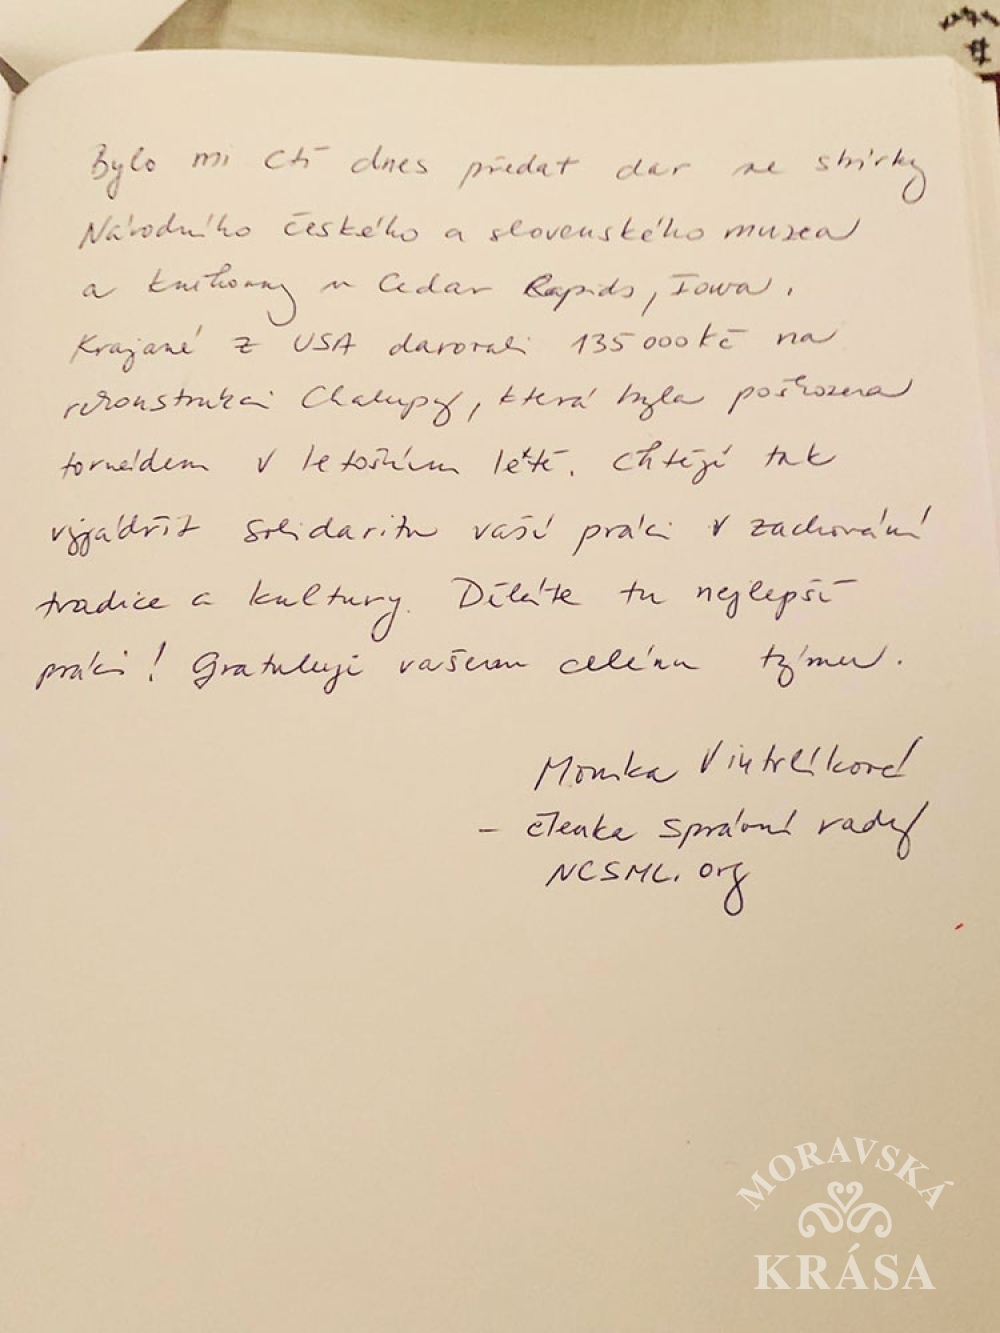 Bylo mi ctí dnes předat dar ze sbírky
Národního českého a slovenského muzea
a knihovny v Cedar Rapids, Iowa.
Krajané z USA darovali 135 000 Kč na
rekonstrukci Chalupy, která byla poškozena
tornádem v letošním létě. Chtějí tak
vyjádřit solidaritu vaší práci v zachování
tradice a kultury. Děláte tu nejlepší
práci! Gratuluji vašemu celému týmu.
Monika Vintrlíková
- členka správní rady
NCSML.org
MORAVSKÁ
KRÁSA